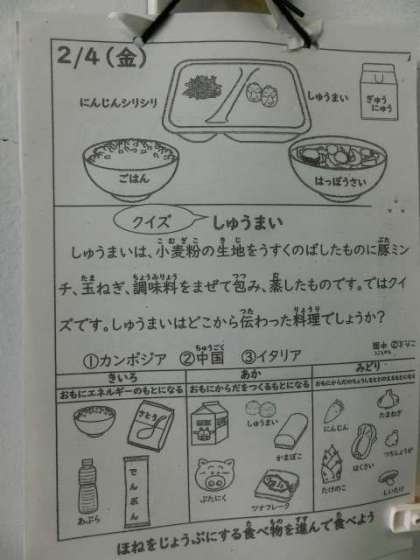 2/4(金)
にんじんシリシリ
しゅうまい
ぎゅうにゅう
ごはん
はっぽうさい
クイズ
しゅうまい
しゅうまいは、小麦粉の生地をうすくのばしたものに豚ミン
チ、玉ねぎ、調味料をまぜて包み、蒸したものです。ではクイ
ズです。しゅうまいはどこから伝わった料理でしょうか?
①カンボジア ②中国 ③イタリア
きいろ
あか
みどり
おもにエネルギーのもとになる
おもにからだをつくるもとになる
おもにからだのちょうしをととのえるもとになる
さとう
あぶら
でんぷん
しゅうまい
かまぼこ
ぶたにく
ツナフレーク
にんじん
たまねぎ
はくさい
たけのこ
しいたけ
ほねをじょうぶにする食べ物を進んで食べよう